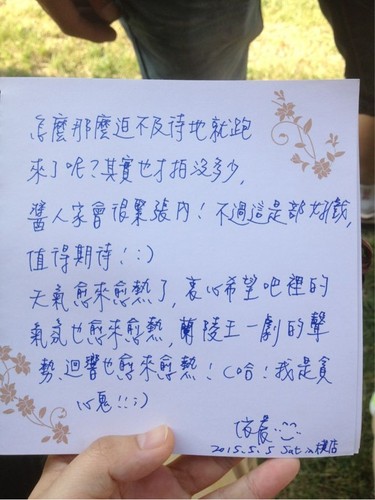 怎麼那麼迫不及待地就跑
來了呢?其實也才拍沒多少,
醬人家會很緊張內!不過這是部好戲,
值得期待!:)
天氣愈來愈熱了,衷心希望吧裡的
氣氛也愈來愈熱,蘭陵王一劇的聲
勢迴響也愈來愈熱!(哈!我是貪
心鬼!!;)
依晨
2015.5.5 Sat in 橫店